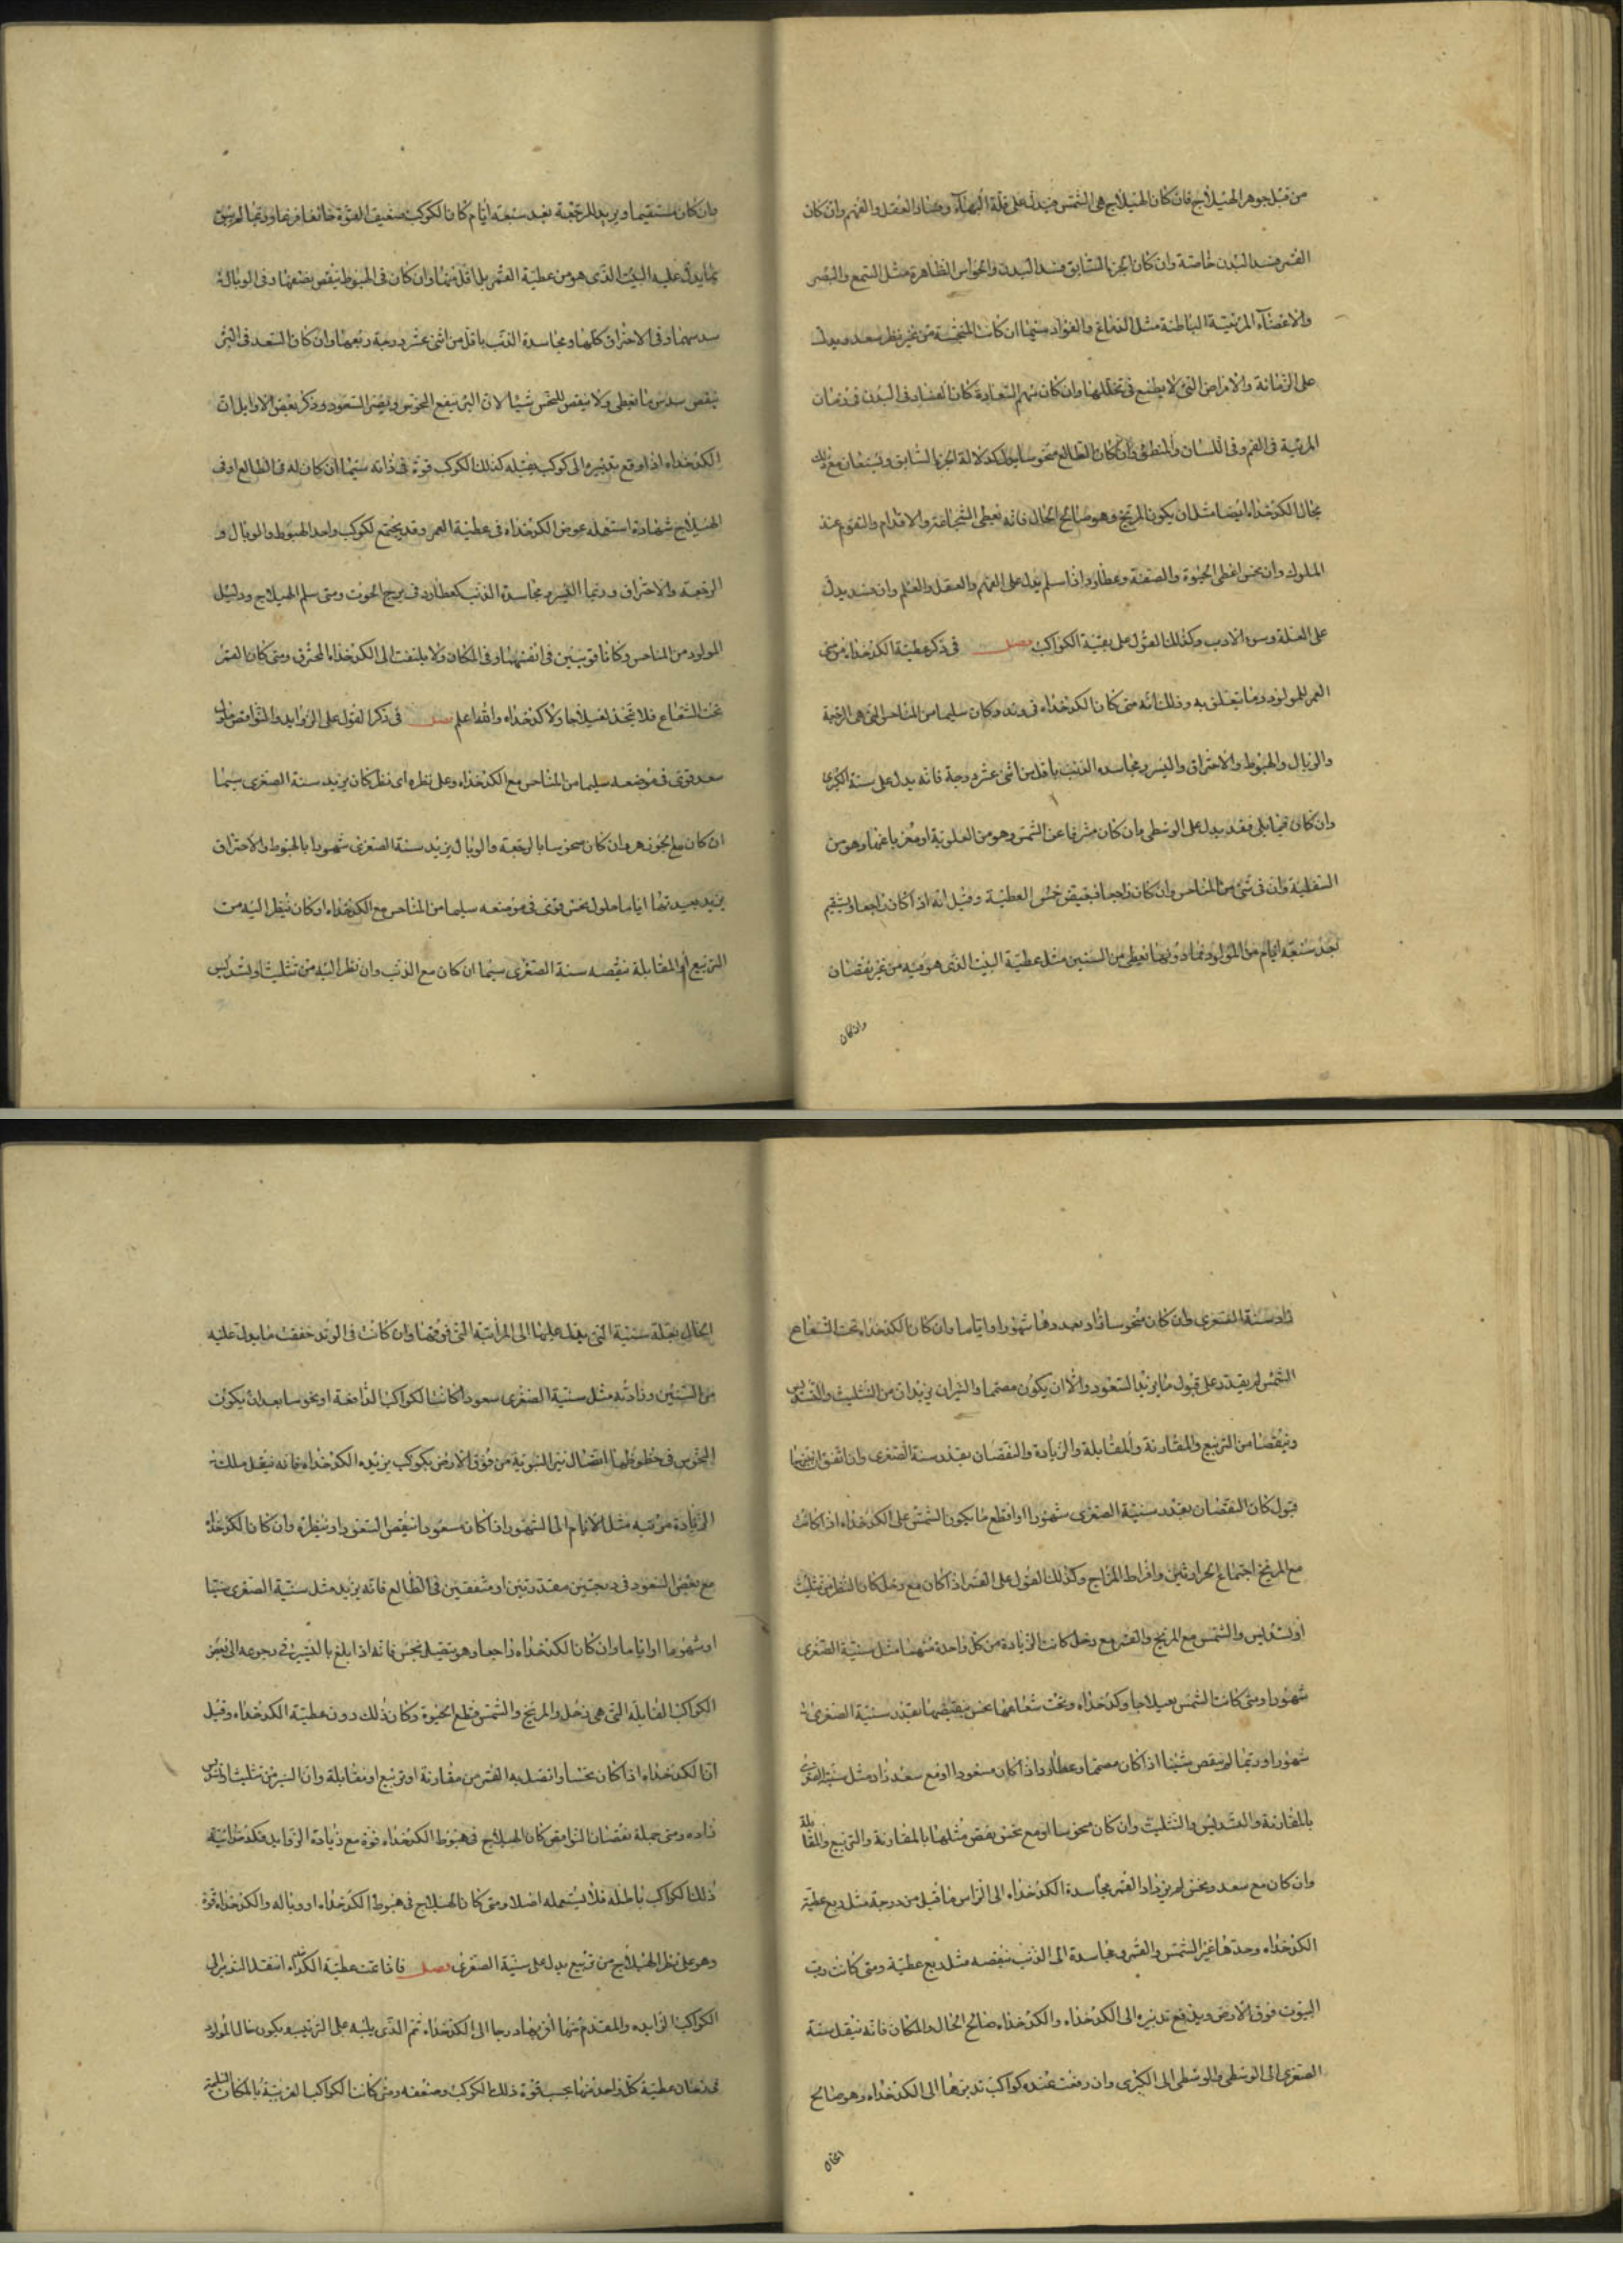 من قبل جوهر الهيلاج فان كان الهيلاج هي الشمس فيدل على قلة البهآء وفساد العقل والفهم وان كان
القمر فسد البدن خاصة وان كان الجزء السابق فسد البدن والحواس الظاهرة مثل السمع والبصر
والاعضآء الرئيسة الباطنة مثل الدماغ والفواد سيما ان كانت المنحسة من غير نظر سعد ويدل
على الزمانة والامراض التي لا يطمع في تحللها وان كان سهم السعادة كان الفساد في البدن في زمان
المرئية في الفم وفي اللسان والمنطق وان كان الطالع منحوسا يدل كدلالة الجزء السابق ويستعان مع ذلك
بحال الكدخداه ايضا مثل ان يكون المريخ وهو صالح الحال فانه يعطى الشجاعة والاقدام والتقوم عند
الملوك وان نحس اعطى الجنوة والصفنة وعطارد اذا سلم يدل على الفهم والعقل والعلم وان فسد يدل
على العلة وسوء الادب وكذلك القول على بقية الكواكب فصل في ذكر عطية الكدخداه من سنى
العمر للمولود وما تتعلق به وذلك انه متى كان الكدخداه في وتد وكان سليما من المناحس التي هي الرجعة
والوبال والهبوط والاحتراق والبئر ومجاسدة الذنب باقل من اثنى عشر درجة فانه يدل على سنة الكبرى
وان كان فيما يلى فقد يدل على الوسطى وان كان مشرقا عن الشمس وهو من العلوية او مغربا عنها وهو من
السفلية وان في شئ من المناحس وان كان راجعا فينقص خمس العطية وقيل انه اذا كان راجعا ويستقيم
بعد سبعة ايام من المولود فما دونها يعطى من السنين مثل عطية البيت الذى هو فيه من غير نقصان
وان كان
وان كان مستقيما ويريد الرجعة بعد سبعة ايام كان الكوكب ضعيف القوة خائفا فزعا وربما لم يبق
بما يدل عليه البيت الذى هو من عطية العمر بل اقل منها وان كان في الهبوط ينقص نصفها وفي الوبال
سدسها وفي الاحتراق كلها ومجاسدة الذنب باقل من اثنى عشر درجة ربعها وان كان السعد في البئر
ينقص سدس ما يعطى ولا ينقص للنحس شيا لان البئر ينفع النحوس ويضر السعود وذكر بعض الاوايل ان
الكدخداه اذا وقع تدبيره الى كوكب يقبله كذلك الكوكب قوة في ذاته سيما ان كان له في الطالع او في
الهيلاج شهادة استعمله عوض الكدخداه في عطية العمر وقد يجتمع لكوكب واحد الهبوط والوبال و
الرجعة والاحتراق وربما البئر ومجاسدة الذنب كعطارد في برج الحوت ومتى سلم الهيلاج ودليل
المولود من المناحس وكانا قويين في انفسهما وفي المكان ولا يلتفت الى الكدخداه المحترق ومتى كان القمر
تحت الشعاع فلا تتخذ هيلاجا ولا كدخداه والله اعلم فصل في ذكر القول على الزوايد والنواقص
سعد قوى في موضعه سليما من المناحس مع الكدخداه وعلى نظره اى نظر كان يزيد سنة الصغرى سيما
ان كان مع الجوزهر وان كان منحوسا بالرجعة والوبال يزيد سنة الصغرى شهورا بالهبوط والاحتراق
يزيد بعدتها اياما نحس قوى في موضعه سليما من المناحس مع الكدخداه او كان ينظر اليه من
التربيع او المقابلة نقصه سنة الصغرى سيما ان كان مع الذنب وان نظر اليه من تثليث او تسديس
زاد سنة الصغرى وان كان منحوسا زاد بعددها شهورا او اياما وان كان الكدخداه تحت الشعاع
الشمس لم يقدر على قبول ما يزيد السعود والا ان يكون مصمما والنيران يزيدان من التثليث والتسديس
وينقصا من التربيع والمقارنة والمقابلة والزيادة والنقصان بقدر سنة الصغرى وان اتفق بينهما
قبول كان النقصان بقدر سنية الصغرى شهورا واقطع ما يكون الشمس على الكدخداه اذا كانت
مع المريخ اجتماع الحرارتين وافراط المزاج وكذلك القول على القمر اذا كان مع زحل كان النظر من تثليث
او تسديس والشمس مع المريخ والقمر مع زحل كانت الزيادة من كل واحدة منهما مثل سنية الصغرى
شهورا ومتى كانت الشمس هيلاجا وكدخداه وتحت شعاعها نحس ينقصها بقدر سنية الصغرى
شهورا وربما لم ينقص شيئا اذا كان مصمما وعطارد اذا كان مسعودا او مع سعد زاد مثل سنية الصغرى
بالمقارنة والتسديس والتثليث وان كان منحوسا او مع نحس نقص مثلها بالمقارنة والتربيع والمقابلة
وان كان مع سعد ونحس لم يزد القمر مجاسدة الكدخداه الى الراس ما قبل من درجة مثل ربع عطية
الكدخداه وحدها غير الشمس والقمر ومجاسدة الى الذنب ينقصه مثل ربع عطية ومتى كانت رب
البيوت فوق الارض ويدفع تدبيره الى الكدخداه والكدخداه صالح الحال والمكان فانه ينقل سنة
الصغرى الى الوسطى والوسطى الى الكبرى وان دفعت عنده كواكب تدبيرها الى الكدخداه وهو صالح
الحال
الحال بقبلة سنية التي يقبل عليها الى المراتبة التي فوقها وان كانت في الوتد خففت ما يدل عليه
من السنين وزادته مثل سنية الصغرى سعودا كانت الكواكب الدافعة او نحوسا بعد ان يكون
النحوس في حظوظها اتصال نير النوبة من فوق الارض بكوكب يزيده الكدخداه فانه ينقل ملك
الزيادة مرتبه مثل الايام الى الشهور اذا كان مسعودا ينقص السعود او نظره وان كان الكدخداه
مع بعض السعود في درجتين مقتدرتين او متفقتين في الطالع فانه يزيد مثل سنية الصغرى سنينا
او شهورا او اياما وان كان الكدخداه راجعا وهو متصل بنحس فانه اذا بلغ بالتسيير في رجوعه الى بعض
الكواكب القاتلة التي هي زحل والمريخ والشمس قطع الحيوة وكان ذلك دون عطية الكدخداه وقيل
ان الكدخداه اذا كان نحسا واتصل به القمر من مقارنة او تربيع او مقابلة وان النير من تثليث او تسديس
زاده ومتى جملة نقصان النواقص كان الهيلاج في هبوط الكدخداه قوة مع زيادة الزوايد فكدخدائية
ذلك الكواكب باطلة فلا يستعمله اصلا ومتى كان الهيلاج في هبوط الكدخداه او وباله والكدخداه قوة
وهو على نظر الهيلاج من تربيع يدل على سنية الصغرى فصل فاذا تمت عطية الكدخداه انتقل التدبير الى
الكواكب الزايده والمقدم منها اقربها درجا الى الكدخداه ثم الذى يليه على الترتيب ويكون حال المولود
في زمان عطية كل واحد منها بحسب قوة ذلك الكوكب وضعفه ومتى كانت الكواكب القريبة بالمكان